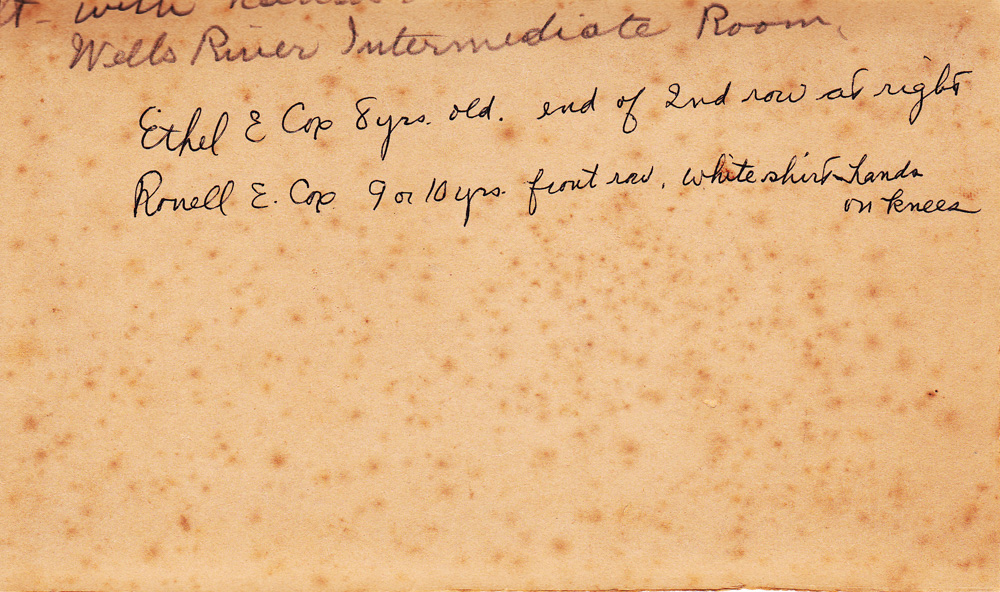 with
Wells River Intermediate Room.
Ethel E Cox 8 yrs. old. end of 2nd row at right
Ronell E. Cox 9 or 10 yrs. front row. white shirt-hands
on knees